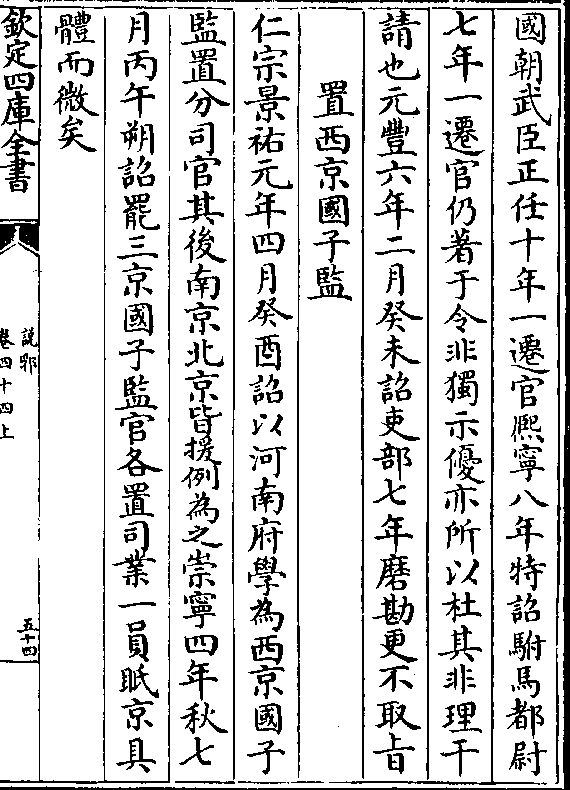 國朝武臣正任十年一遷官熈寧八年特詔駙馬都尉
七年一遷官仍著于令非獨示優亦所以杜其非理干
請也元豐六年二月癸未詔吏部七年磨勘更不取旨
置西京國子監
仁宗景祐元年四月癸酉詔以河南府學為西京國子
監置分司官其後南京北京皆援例為之崇寧四年秋七
月丙午朔詔罷三京國子監官各置司業一員眂京具
體而微矣
欽定四庫全書
說郛
卷四十四上
五十四